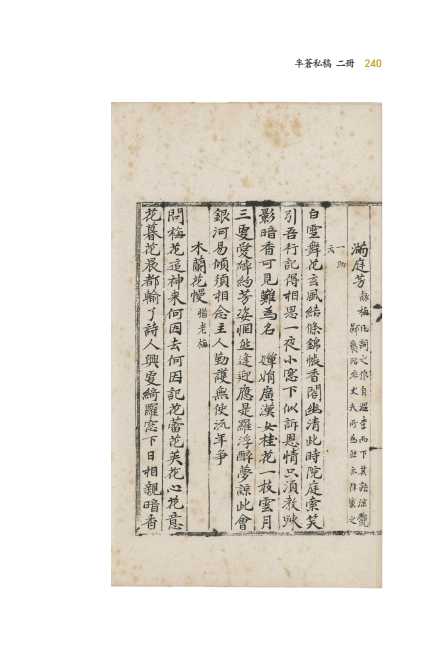 半蒼私稿 二冊 240
滿庭芳 詠梅
白雪舞花玄風結條錦帳香閣幽清此時院庭索笑
引吾行記得相思一夜小窓下似訴恩情只須教
影暗香可見難爲名 嬋娟廣漢女桂花一枝雲月
三更愛綽約芳姿惆悵逢迎應是羅浮醉夢諒此會
銀河易傾須相念主人勤護無使流年爭
木蘭花慢 惜老梅
問梅花造神來何因去何因記花蕾花英花心花意
花暮花晨都輸了詩人興更綺羅窓下日相親暗香